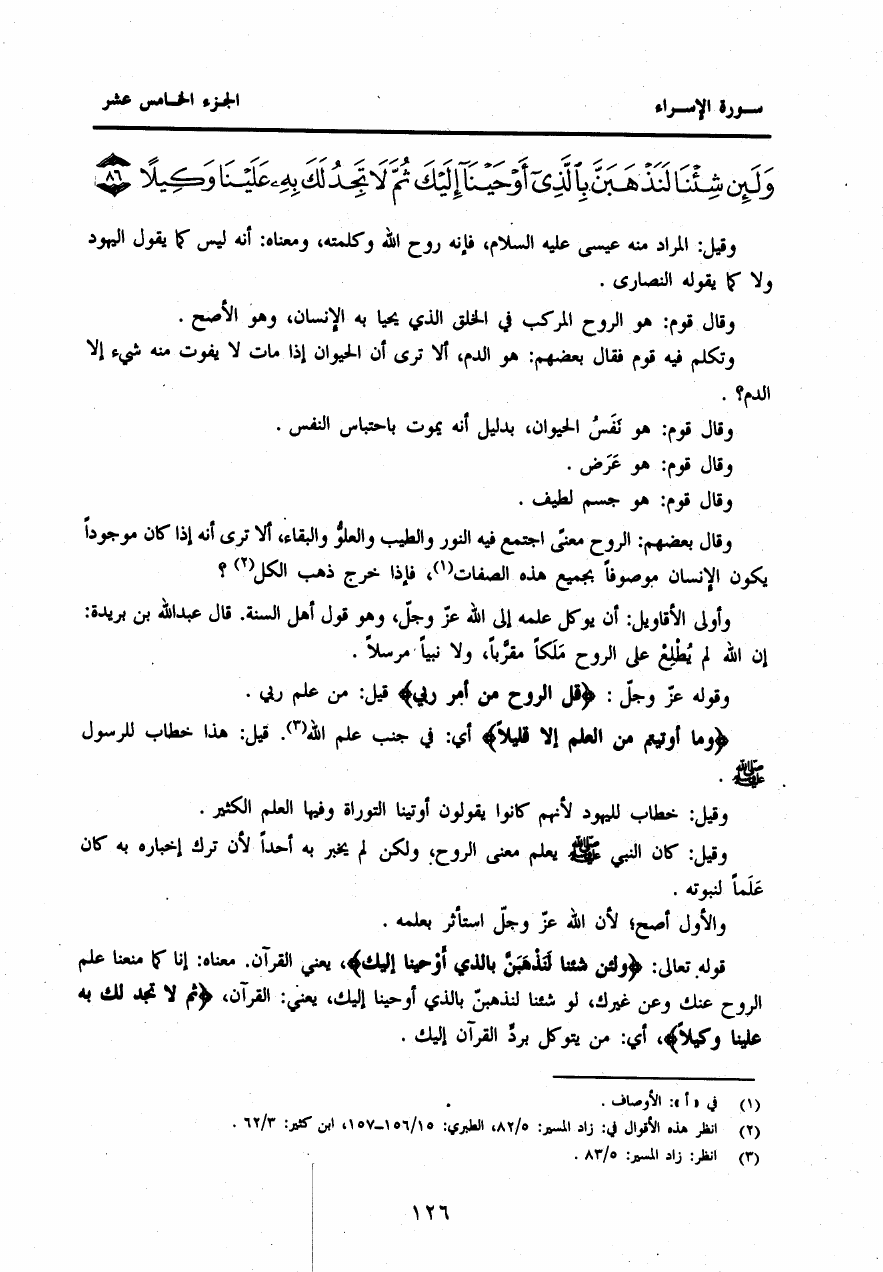 سورة الإسراء
الجزء الخامس عشر
وَلَئِن شِئْنَا لَنَذْهَبَنَّ بِٱلَّذِىٓ أَوْحَيْنَآ إِلَيْكَ ثُمَّ لَا تَجِدُ لَكَ بِهِۦ عَلَيْنَا وَكِيلًا ٨٦
وقيل: المراد منه عيسى عليه السلام، فإنه روح الله وكلمته، ومعناه: أنه ليس كما يقول اليهود
ولا كما يقوله النصارى .
وقال قوم: هو الروح المركب في الخلق الذي يحيا به الإنسان، وهو الأصح .
وتكلم فيه قوم فقال بعضهم: هو الدم، ألا ترى أن الحيوان إذا مات لا يفوت منه شيء إلا
الدم؟ .
وقال قوم: هو نَفَسُ الحيوان، بدليل أنه يموت باحتباس النفس .
وقال قوم: هو عَرَض .
وقال قوم: هو جسم لطيف .
وقال بعضهم: الروح معنًى اجتمع فيه النور والطيب والعلوُّ والبقاء، ألا ترى أنه إذا كان موجوداً
يكون الإنسان موصوفاً بجميع هذه الصفات(١)، فإذا خرج ذهب الكل(٢) ؟
وأولى الأقاويل: أن يوكل علمه إلى الله عزّ وجلّ، وهو قول أهل السنة. قال عبدالله بن بريدة:
إن الله لم يُطْلِعْ على الروح مَلَكاً مقرَّباً، ولا نبياً مرسلاً .
وقوله عزّ وجلّ : ﴿قل الروح من أمر ربي﴾ قيل: من علم ربي .
﴿وما أوتيتم من العلم إلا قليلاً﴾ أي: في جنب علم الله(٣). قيل: هذا خطاب للرسول
ﷺ .
وقيل: خطاب لليهود لأنهم كانوا يقولون أوتينا التوراة وفيها العلم الكثير .
وقيل: كان النبي ﷺ يعلم معنى الروح، ولكن لم يخبر به أحداً لأن ترك إخباره به كان
عَلَماً لنبوته .
والأول أصح؛ لأن الله عزّ وجلّ استأثر بعلمه .
قوله تعالى: ﴿ولئن شئنا لَنَذْهَبَنَّ بالذي أَوْحينا إليك﴾، يعني القرآن. معناه: إنا كما منعنا علم
الروح عنك وعن غيرك، لو شئنا لنذهبنّ بالذي أوحينا إليك، يعني: القرآن، ﴿ثم لا تجد لك به
علينا وكيلاً﴾، أي: من يتوكل بردِّ القرآن إليك .
(١) في «أ»: الأوصاف .
(٢) انظر هذه الأقوال في: زاد المسير: ٨٢/٥، الطبري: ١٥٦/١٥_١٥٧، ابن كثير: ٦٢/٣ .
(٣) انظر: زاد المسير: ٨٣/٥ .
١٢٦